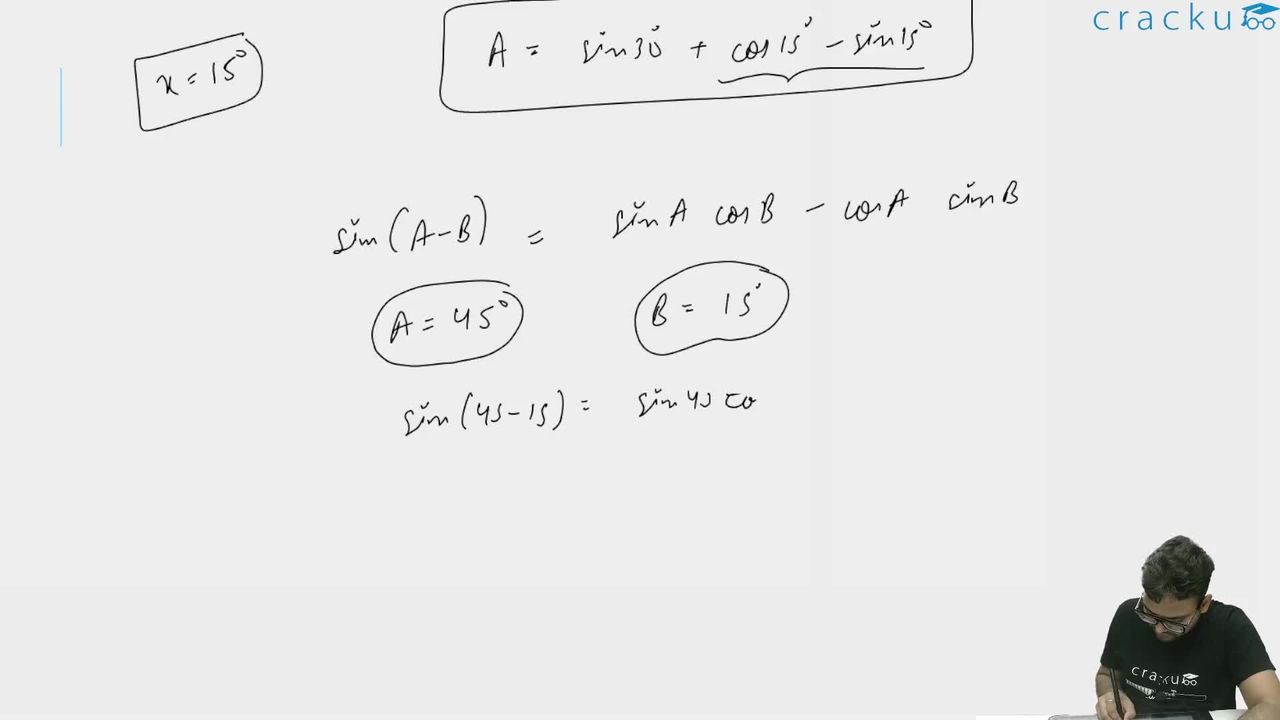 cracku
x = 15°
A = sin30° + cos15° - sin15°
sin(A-B) = sinA cosB - cosA sinB
A = 45°
B = 15°
sin(45-15) = sin45 co
cracku